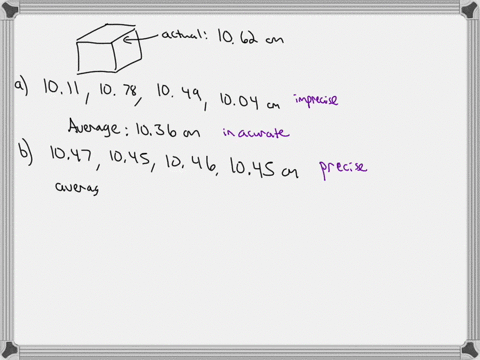 actual: 10.62 cm
a) 10.11, 10.78, 10.49, 10.04 cm imprecise
Average: 10.36 cm inacurate
b) 10.47, 10.45, 10.46, 10.45 cm precise
averag